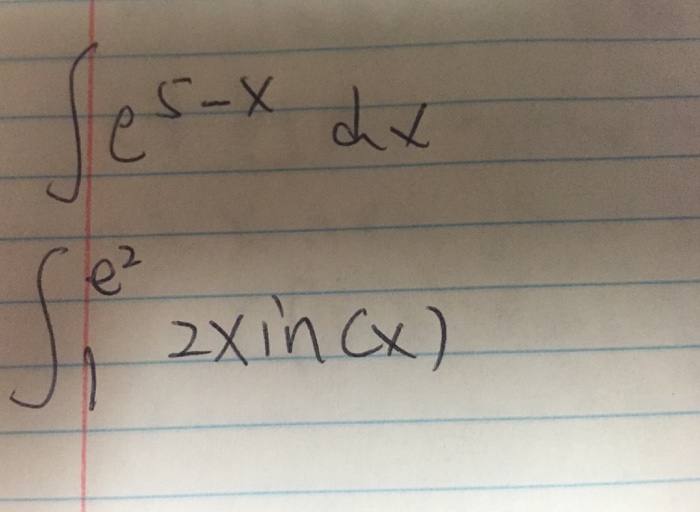 ∫e^{5-x} dx
∫_1^{e^2} 2xin(x)